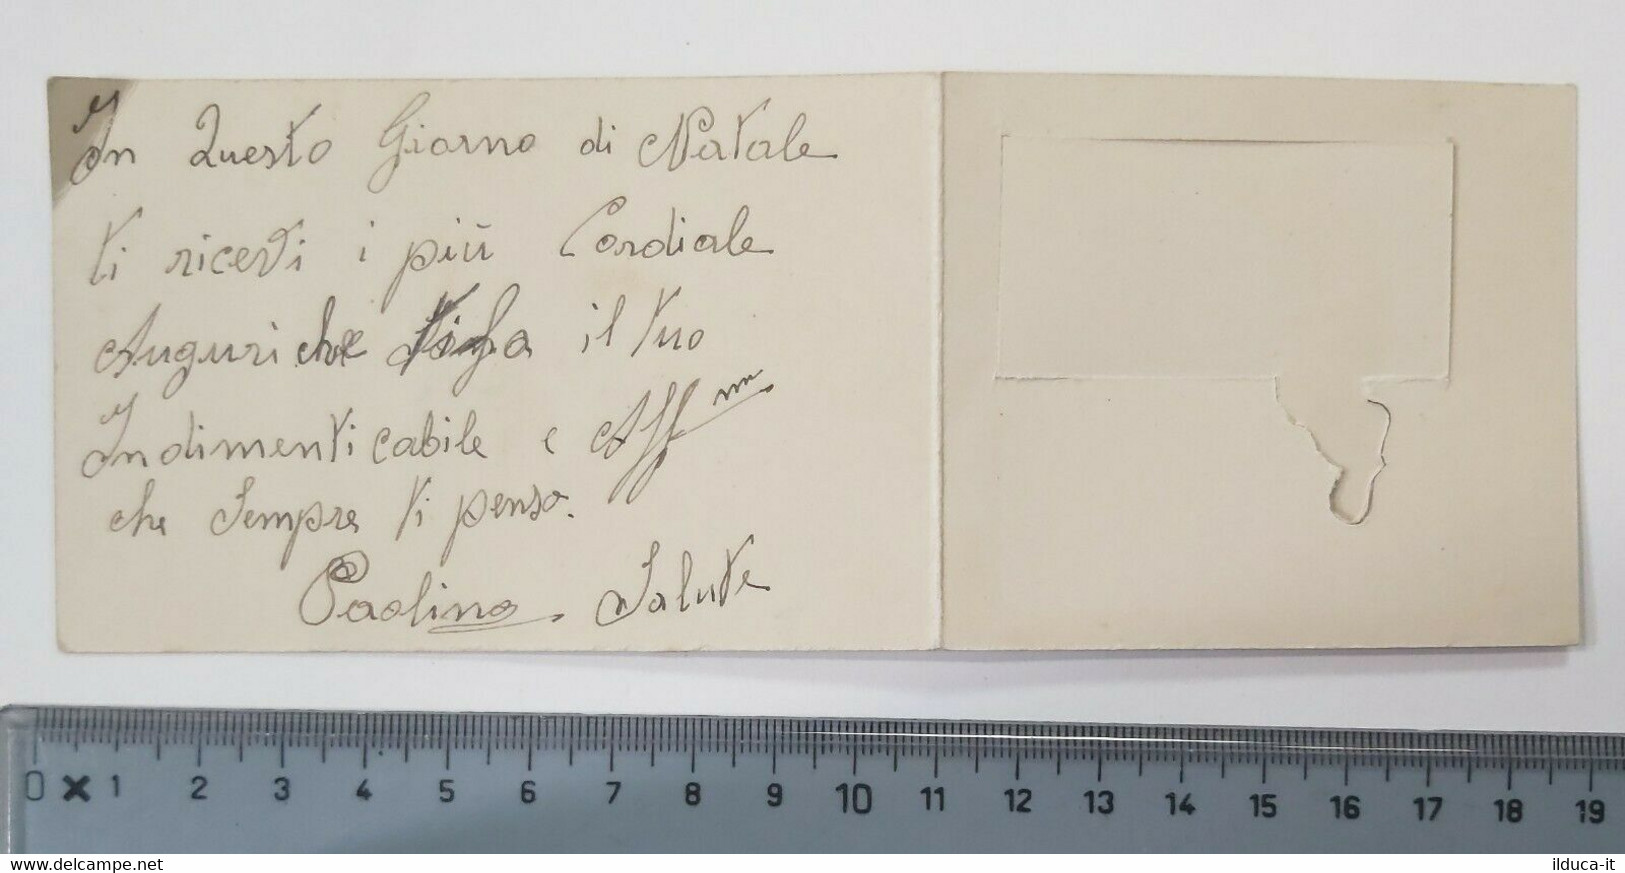 In Questo Giorno di Natale
ti ricevi i più Cordiale
Auguri che ti fa il tuo
Indimenticabile e Aff mo
che Sempre ti penso.
Paolino. Salute
0 x 1 2 3 4 5 6 7 8 9 10 11 12 13 14 15 16 17 18 19
www.delcampe.net
ilduca-it